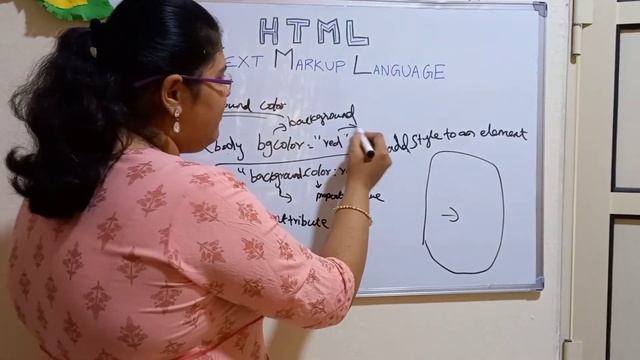 HTML
EXT MARKUP LANGUAGE
ound color
background
body bgcolor="red"
add style to an element
"background color: